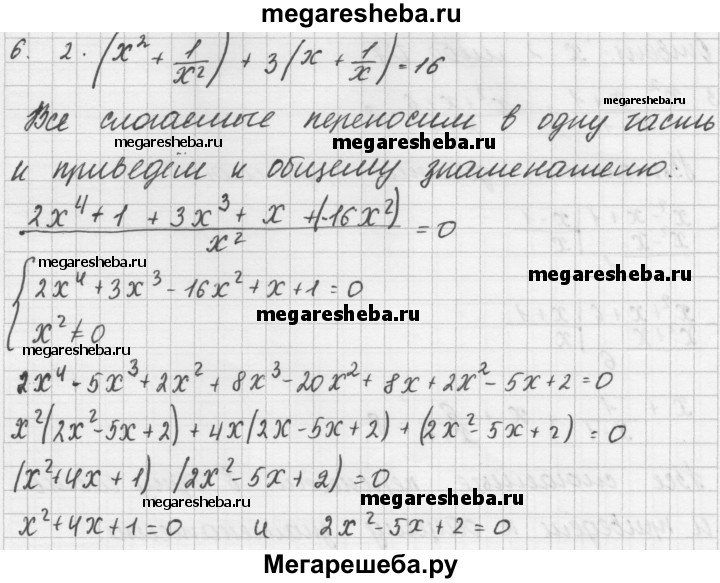 megaresheba.ru
6. 2·(x² + 1/x²) + 3(x + 1/x) = 16
megaresheba.ru
Все слогаемые переносим в одну часть
и приведём к общему знаменателю:
megaresheba.ru
(2x⁴ + 1 + 3x³ + x + (-16x²))/x² = 0
megaresheba.ru
megaresheba.ru
{ 2x⁴ + 3x³ - 16x² + x + 1 = 0
megaresheba.ru
x² ≠ 0
megaresheba.ru
2x⁴ - 5x³ + 2x² + 8x³ - 20x² + 8x + 2x² - 5x + 2 = 0
megaresheba.ru
x²(2x² - 5x + 2) + 4x(2x - 5x + 2) + (2x² - 5x + 2) = 0
megaresheba.ru
(x² + 4x + 1) (2x² - 5x + 2) = 0
megaresheba.ru
megaresheba.ru
x² + 4x + 1 = 0 и 2x² - 5x + 2 = 0
Мегарешеба.ру